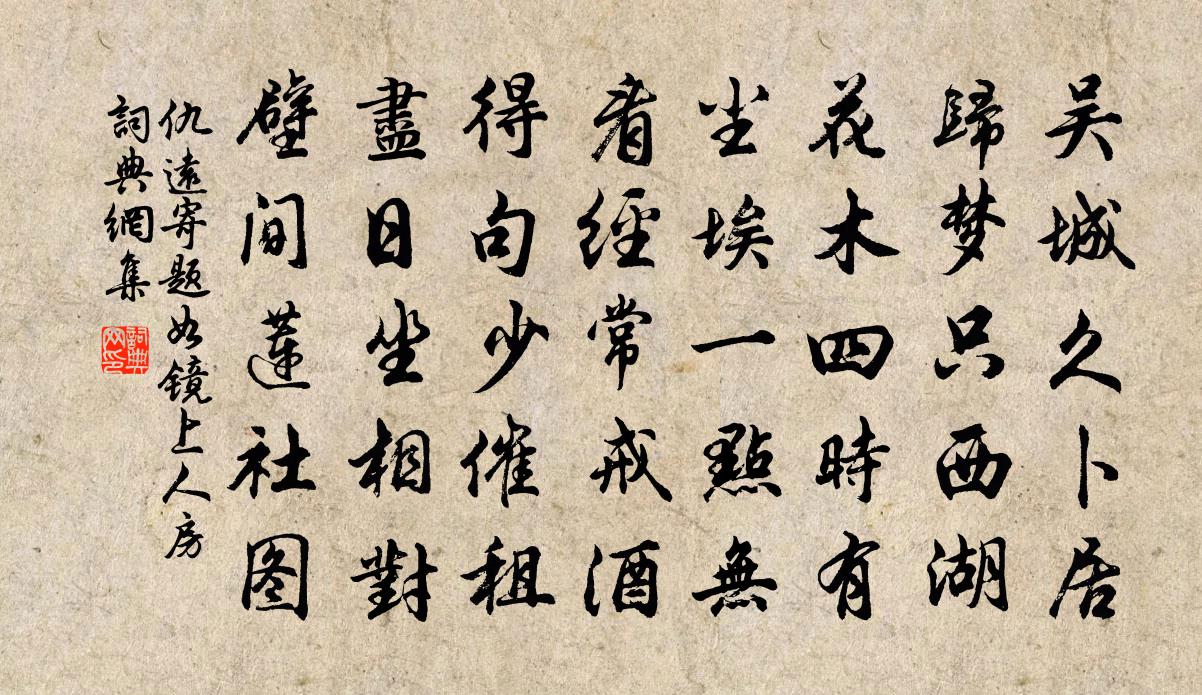 吴城久卜居
歸梦只西湖
花木四時有
尘埃一點無
看經常戒酒
得句少催租
盡日坐相對
壁间蓮社图
仇遠寄题如鏡上人房
詞典網集
詞典网印